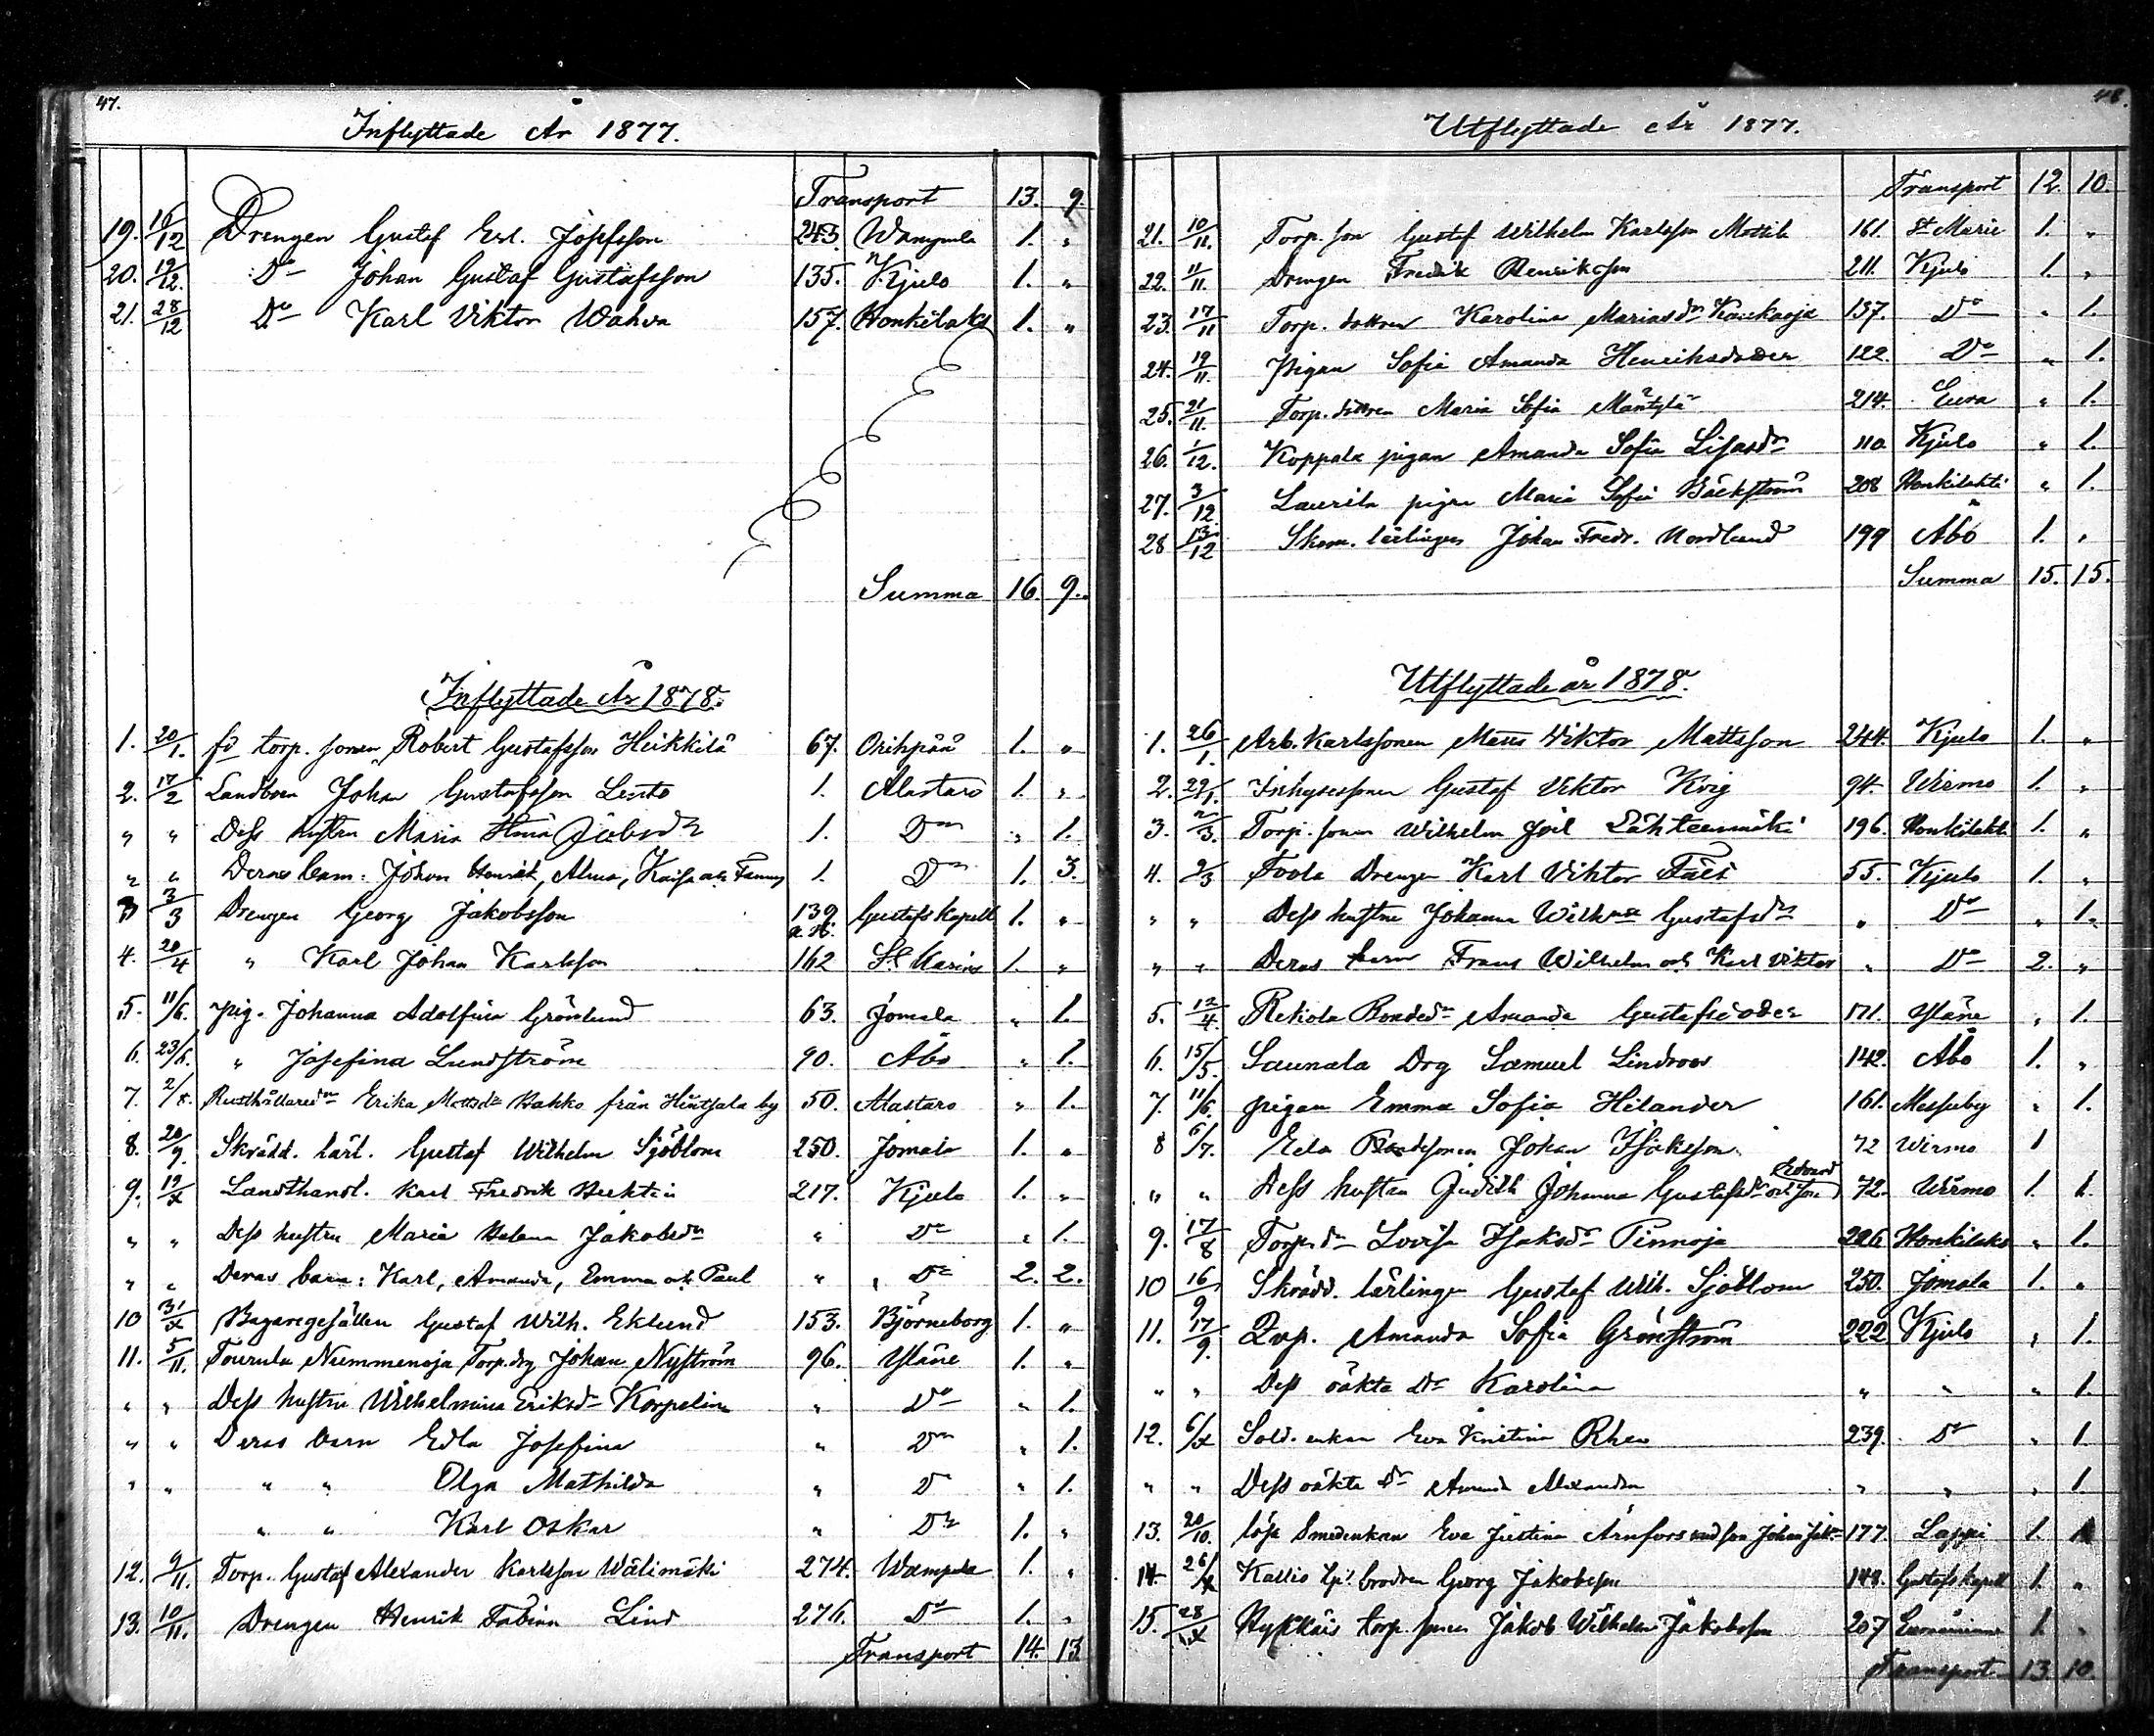 47.
Inflyttade År 1877.
Transport 13. 9.
19. 16/12 Drengen Gustaf Josefsson 243. Wampula 1. "
20. 19/12. Do Johan Gustaf Gustafsson 135. Kjulo 1. "
21. 28/12 Do Karl Viktor Wahva 157. Honkilaks 1. "
Summa 16. 9.
Inflyttade År 1878.
1. 20/1. fd torp. sonen Robert Gustafsson Heikkilä 67. Orihpää 1. "
2. 17/2 Landbon Johan Gustafsson 1. Alastaro 1. "
" " Dess hustru Maria 1. Do " 1.
" " Deras barn: Johan Henrik, Alma, Kaisa och Fanny 1. Do 1. 3.
3 3/3 Drengen Georg Jakobsson 139. Gustafs Kapell 1. "
4. 20/4 " Karl Johan Karlsson 162 St Marie 1. "
5. 11/6. pig. Johanna Adolfina Grönlund 63. Jomala " 1.
6. 23/6. " Josefina Lundström 90. Åbo " 1.
7. Rusthållaredn Erika från Hintsala by 50. Alastaro " 1.
8. 20/9. Skrädd. lärl. Gustaf Wilhelm Sjöblom 250. Jomala 1. "
9. 19/x Landthandl. Karl Fredrik 217. Kjulo 1. "
" " Dess hustru Maria Helena Jakobsdr " Do " 1.
" " Deras barn: Karl, Amanda, Emma och Paul " Do 2. 2.
10 31/x Bagaregesällen Gustaf Wilh. Eklund 153. Björneborg 1. "
11. 5/11. Tourula Nummenoja Torp. drg Johan Nyström 96. Yläne 1. "
" " Dess hustru Wilhelmina Eriksdr Korpelin " Do " 1.
" " Deras barn Edla Josefina " Do " 1.
" " " " Olga Mathilda " Do " 1.
" " Karl Oskar " Do 1. "
12. 9/11. Torp. Gustaf Alexander Karlsson Wälimäki 274. Wampula 1. "
13. 10/11. Drengen Henrik Fabian Lind 276. Do 1. "
Transport 14. 13.
48.
Utflyttade År 1877.
Transport 12. 10.
21. 10/11. Torp. son Gustaf Wilhelm Karlsson Mottila 161. St Marie 1. "
22. 11/11. Drengen Fredrik Henriksson 211. Kjulo 1. "
23. 17/11 Torp. dottren Karolina Mariasdr 137. Do " 1.
24. 19/11. Pigan Sofia Amanda Henriksdotter 122. Do " 1.
25. 21/11. Torp. dottren Maria Sofia Mäntylä 214. Eura " 1.
26. 1/12. Koppala pigan Amanda Sofia Lisasdr 110 Kjulo " 1.
27. 3/12. Laurila pigan Maria Sofia Bäckström 208 Honkilahti " 1.
28 13/12 Skom. lärlingen Johan Fredr. Nordlund 199 Åbo 1. "
Summa 15. 15.
Utflyttade år 1878.
1. 26/1. Arb. Karlssonen Matts Viktor Mattsson 244. Kjulo 1. "
2. 29/1. Inhysessonen Gustaf Viktor Kvig 94. Wirmo 1. "
3. Torp. sonen Wilhelm Joel Lähteenmäki 196. Honkilaht 1. "
4. 9/3 Drengen Karl Viktor 55. Kjulo 1. "
" " Dess hustru Johanna Wilhna Gustafsdr " Do " 1.
" " Deras barn Frans Wilhelm och Karl Viktor " Do 2. "
5. 12/4. Rekola Bondedr Amanda Gustafsdotter 171. Yläne " 1.
6. 15/5. Saunala Drg Samuel Lindroos 142. Åbo 1. "
7. 11/6. pigan Emma Sofia Hilander 161. Messuby " 1.
8 6/7. Bondesonen Johan Isaksson 72 Wirmo 1
" " Dess hustru Judith Johanna Gustafsdr och son Edvard 72. Wirmo 1. 1.
9. 17/8 Torpdr Lovisa Isaksdr Pinnoja 226 Honkilaks " 1.
10 16/9 Skrädd. lärlingen Gustaf Wilh. Sjöblom 250. Jomala 1. "
11. 17/9. Qvp. Amanda Sofia Grönström 222 Kjulo " 1.
" " Dess oäkta dr Karolina " " " 1.
12. 6/x Sold. enkan Eva Kristina Rhen 239. Do " 1
" " Dess oäkta dr Amanda Alexandra " " " 1
13. 20/10. lösa Smedenkan Eva Justina Årnfors med son Johan 177. Lappi 1. 1
14. 26/x Kallio brodren Georg Jakobsson 148. Gustafs kapell 1. "
15. 28/x torp. sonen Jakob Wilhelm Jakobsson 207 1. "
Transport 13 10